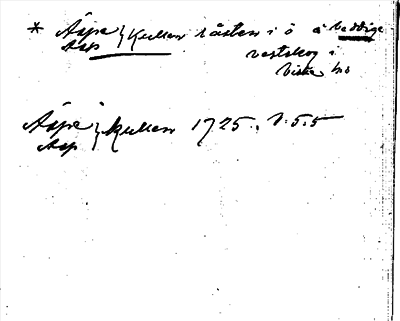 * Äspe } kullen råsten i ö å Veddige
Asp
vestskog i
Viske hd
Äspe } kullen 1725. V. 5.5
Asp